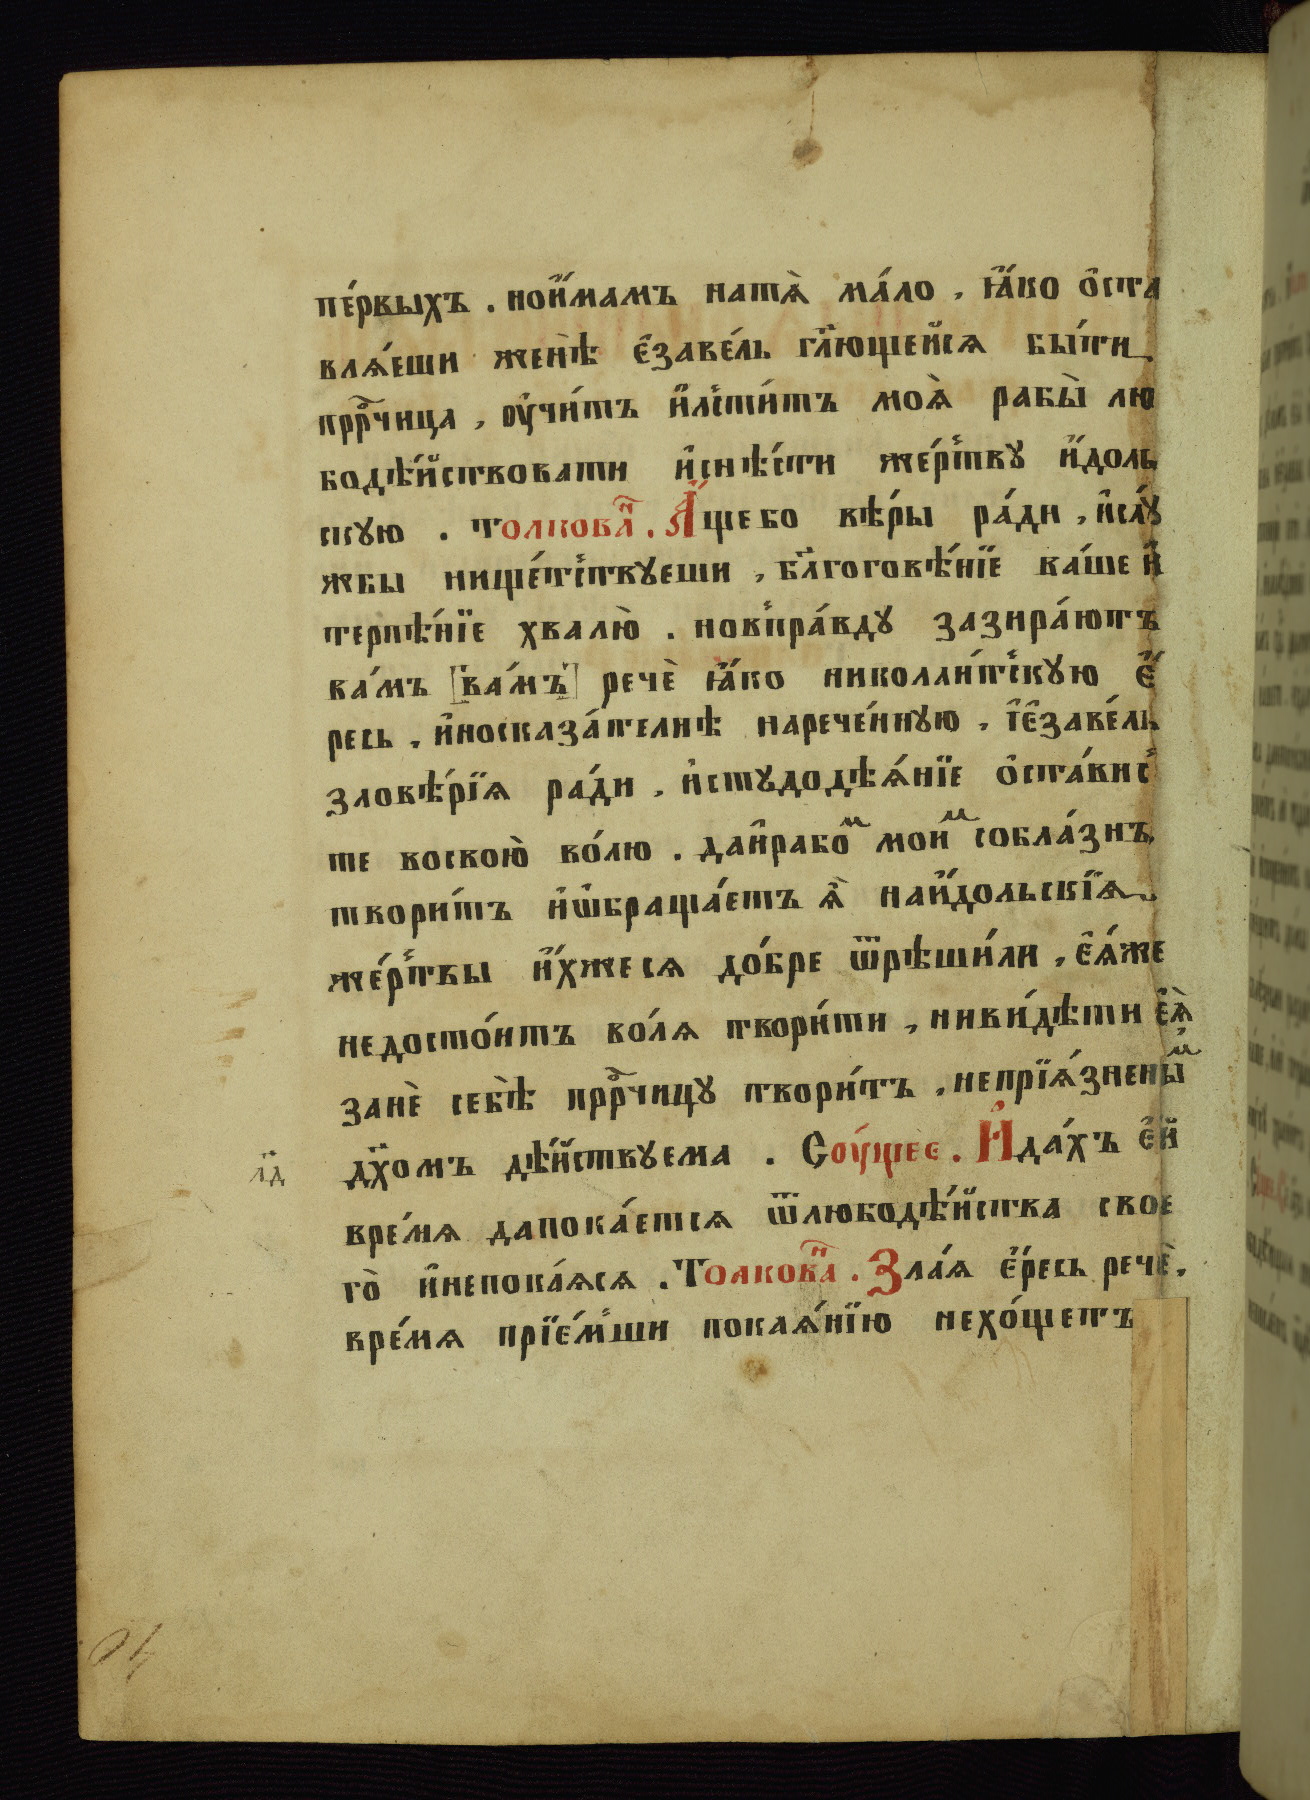 пе́рвыхъ . нои҆́мамъ натѧ̀ ма́ло , ꙗ҆́ко ѻ҆ста
влѧ́еши женѣ̀ є҆завє́ль гл҃ющейсѧ бы́ти
прⷪ҇рчица , оу҆чи́тъ и҆льсти́тъ моѧ̀ рабы̀ лю
бодѣ́йствовати и҆снѣ́сти же́ртву и҆́доль
скую . толкова̑ⷩ . А҆́щебо вѣ́ры ра́ди , и҆слꙋ́
жбы нище́тствꙋеши , бл҃гоговѣ́нїе ва́ше и҆
терпѣ́нїе хвалю̀ . новпра́вдꙋ зазира́ютъ
ва́мъ [ва́мъ] речѐ ꙗ҆́ко николаи́тскꙋю є҆́
ресь , и҆носказа́телнѣ нарече́ннꙋю , і҆є҆заве́ль
зловѣ́рїѧ ра́ди , и҆стꙋдодѣѧ́нїе ѻ҆ста́вис
те восвою̀ во́лю . даи҆рабоⷨ моиⷨ собла́знъ
твори́тъ и҆ѡ҆браща́етъ ѧ҆̀ наи҆́дольскїѧ
же́ртвы и҆́хжесѧ до́бре ѿрѣши́ли , є҆ѧ́же
недосто́итъ во́лѧ твори́ти , ниви́дѣти є҆ѧ̀
занѐ себѣ̀ прⷪ҇рчицꙋ твори́тъ , неприѧ́зненыⷨ
дх҃омъ дѣ́йствꙋема . Соу́щеє . И҆дахъ є҆́й
л҃д
вре́мѧ дапока́етсѧ ѿлюбодѣ́йства свое
го̀ и҆непока́ѧсѧ . Толкова̑ⷩ . Зла́ѧ є҆́ресь речѐ ,
вре́мѧ прїе́мши покаѧ́нїю нехо́щетъ